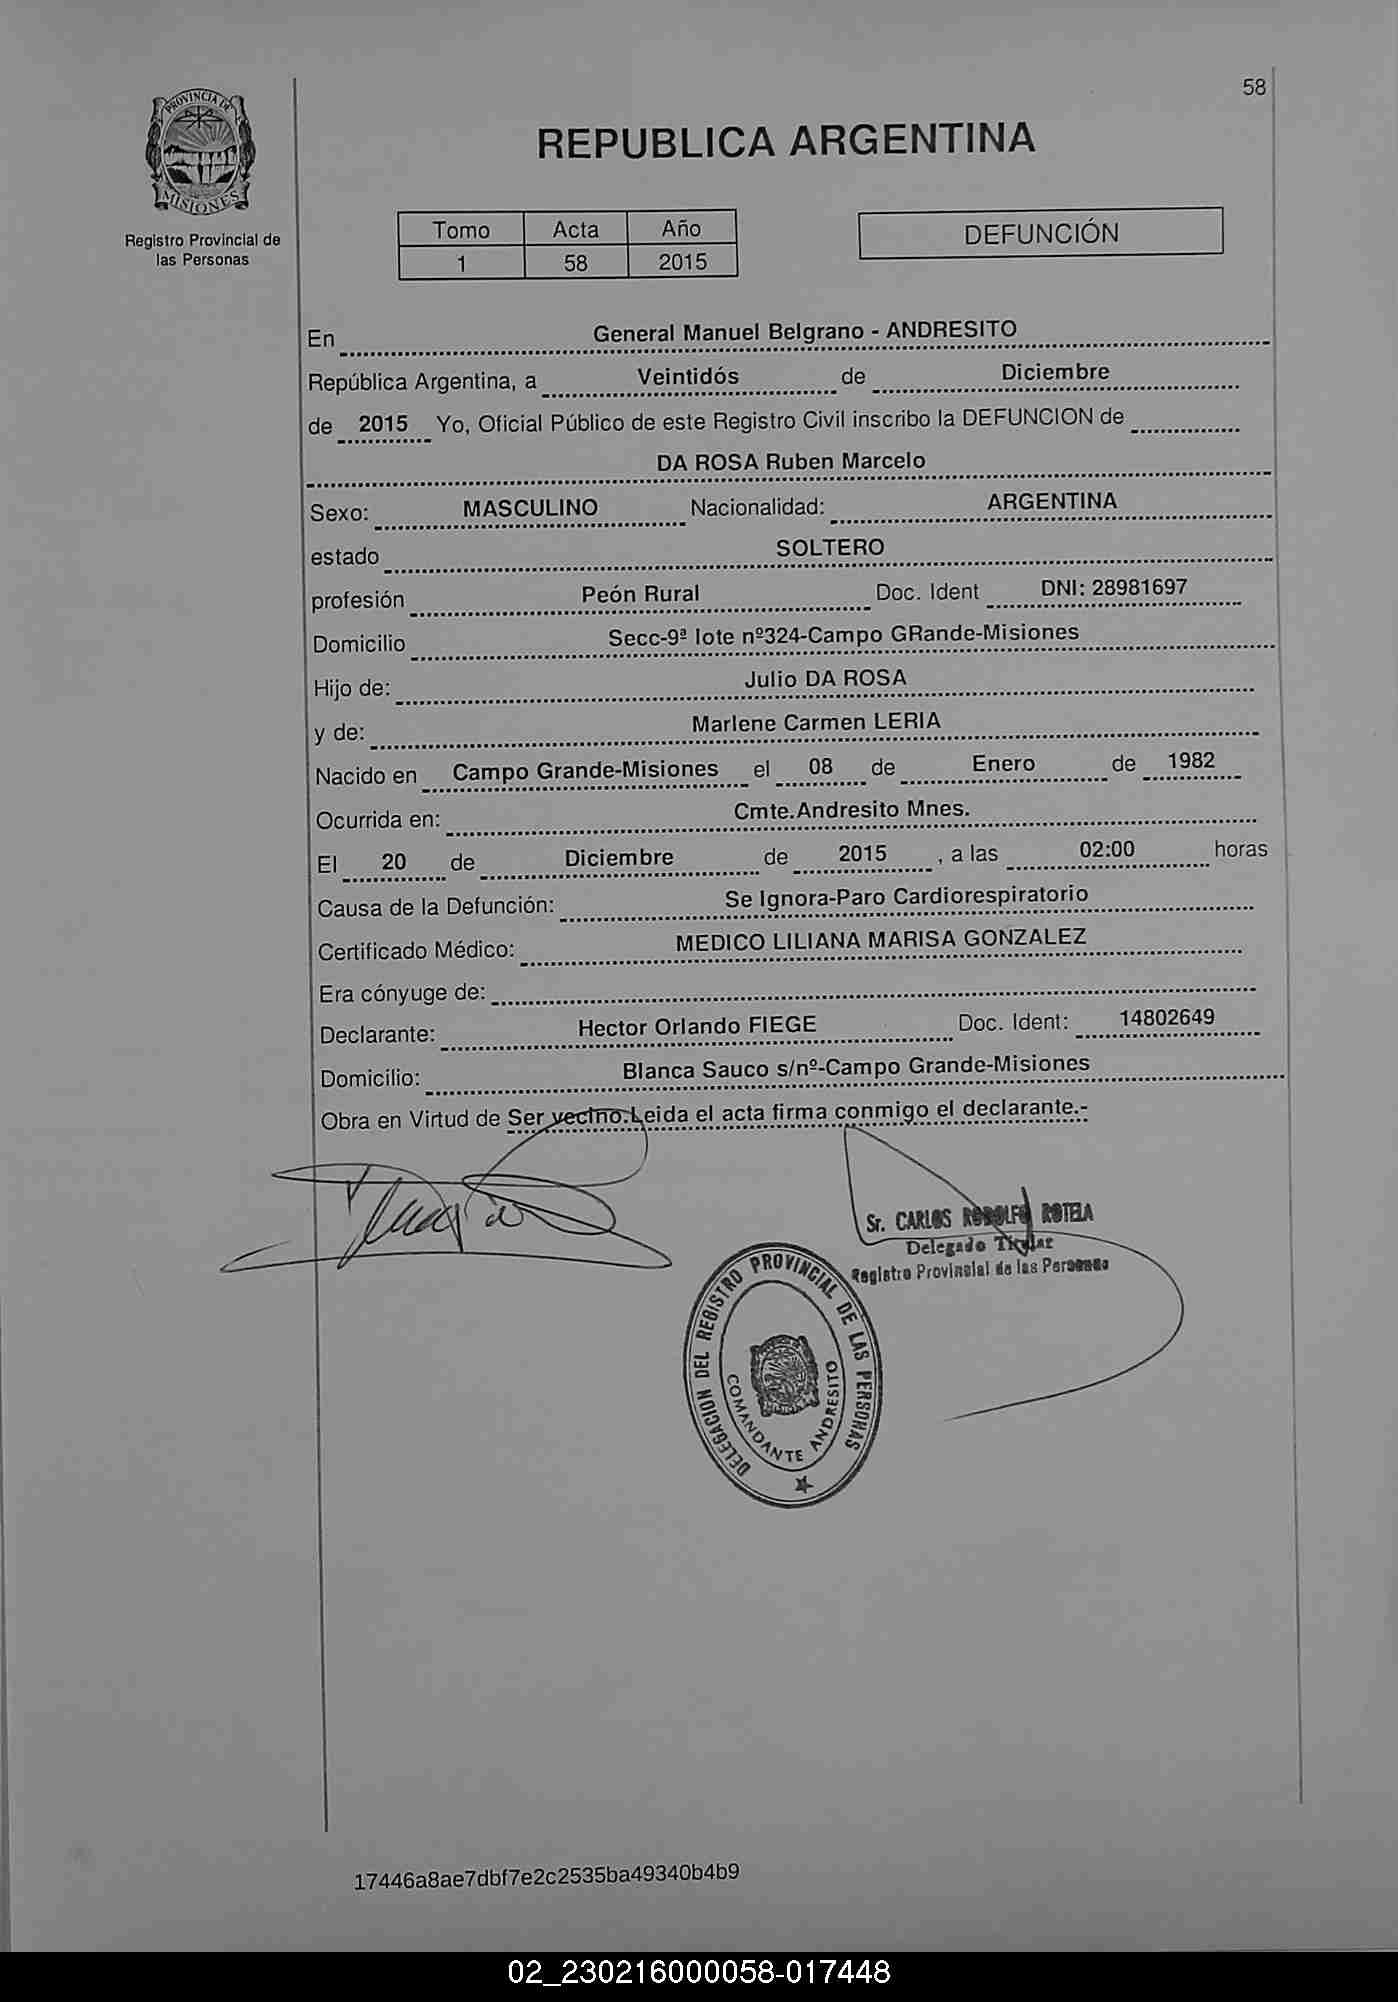 58
PROVINCIA DE
MISIONES
Registro Provincial de
las Personas
REPUBLICA ARGENTINA
Tomo Acta Año
1 58 2015
DEFUNCIÓN
En General Manuel Belgrano - ANDRESITO
República Argentina, a Veintidós de Diciembre
de 2015 Yo, Oficial Público de este Registro Civil inscribo la DEFUNCION de
DA ROSA Ruben Marcelo
Sexo: MASCULINO Nacionalidad: ARGENTINA
estado SOLTERO
profesión Peón Rural Doc. Ident DNI: 28981697
Domicilio Secc-9ª lote nº324-Campo GRande-Misiones
Hijo de: Julio DA ROSA
y de: Marlene Carmen LERIA
Nacido en Campo Grande-Misiones el 08 de Enero de 1982
Ocurrida en: Cmte.Andresito Mnes.
El 20 de Diciembre de 2015 , a las 02:00 horas
Causa de la Defunción: Se Ignora-Paro Cardiorespiratorio
Certificado Médico: MEDICO LILIANA MARISA GONZALEZ
Era cónyuge de:
Declarante: Hector Orlando FIEGE Doc. Ident: 14802649
Domicilio: Blanca Sauco s/nº-Campo Grande-Misiones
Obra en Virtud de Ser vecino.Leida el acta firma conmigo el declarante.-
Sr. CARLOS RODOLFO ROTELA
Delegado Titular
Registro Provincial de las Personas
DELEGACION DEL REGISTRO PROVINCIAL DE LAS PERSONAS
COMANDANTE ANDRESITO
17446a8ae7dbf7e2c2535ba49340b4b9
02_230216000058-017448